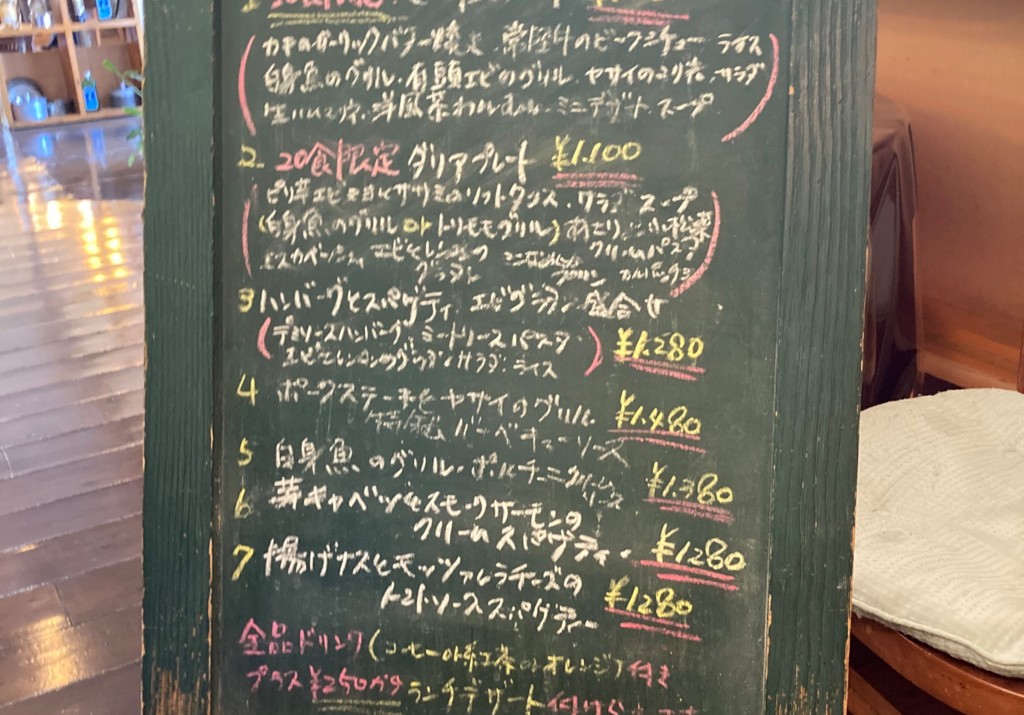 カキのガーリックバター焼き 常陸牛のビーフシチュー ライス
白身魚のグリル・有頭エビのグリル ヤサイの サラダ
生ハム 洋風茶わんむし ミニデザート スープ
2 20食限定 ダリアプレート ¥1.100
スープ
(白身魚のグリル or トリモモグリル)
クリームパスタ
エビとレンコンの
グラタン
3 ハンバーグとスパゲティ エビグラタン 盛合せ
(デミソースハンバーグ ミートソースパスタ
エビとレンコンのグラタン サラダ ライス) ¥1.280
4 ポークステーキとヤサイのグリル ¥1.480
バーベキューソース
5 白身魚のグリル・ポルチーニ ¥1.380
6 芽キャベツとスモークサーモンの
クリームスパゲティー ¥1280
7 揚げナスとモッツァレラチーズの
トマトソーススパゲティー ¥1280
全品ドリンク(コーヒーor紅茶orオレンジ)付き
プラス¥250 ランチデザート